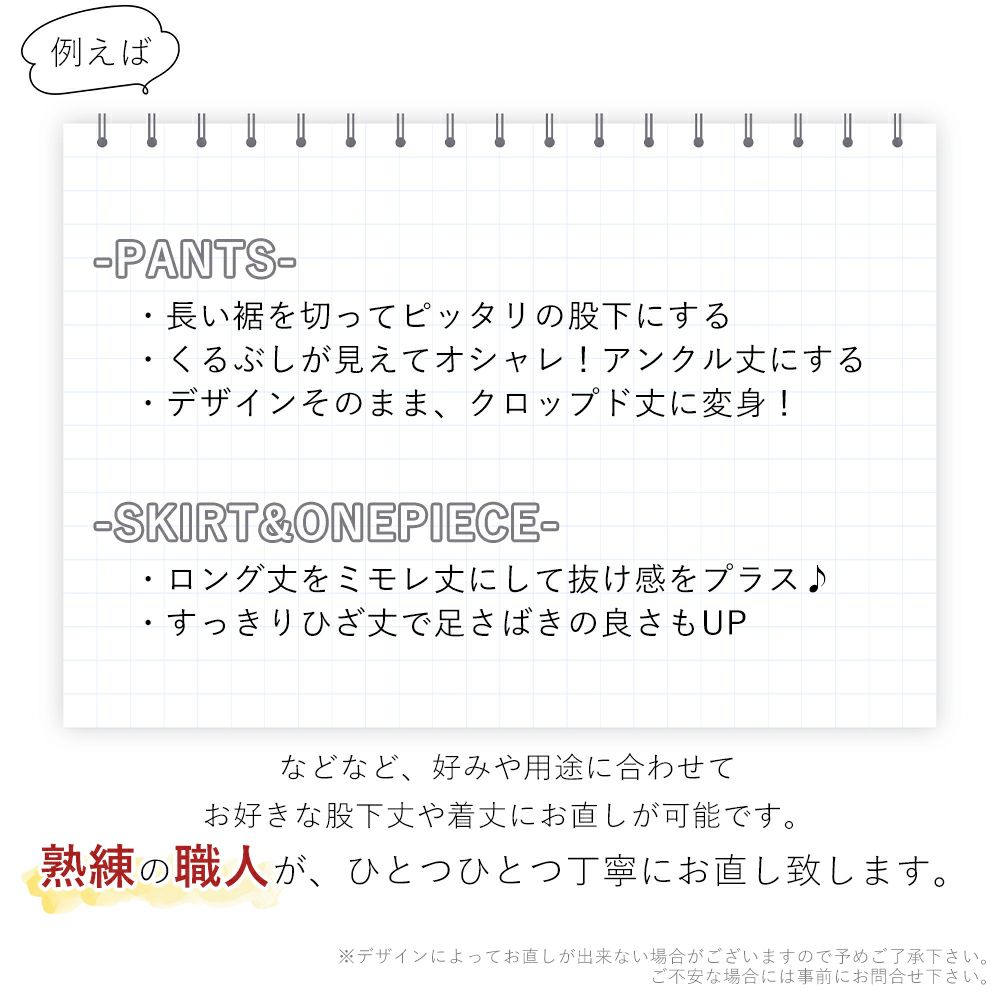 例えば
-PANTS-
・長い裾を切ってピッタリの股下にする
・くるぶしが見えてオシャレ！アンクル丈にする
・デザインそのまま、クロップド丈に変身！
-SKIRT&ONEPIECE-
・ロング丈をミモレ丈にして抜け感をプラス♪
・すっきりひざ丈で足さばきの良さもUP
などなど、好みや用途に合わせて
お好きな股下丈や着丈にお直しが可能です。
熟練の職人が、ひとつひとつ丁寧にお直し致します。
※デザインによってお直しが出来ない場合がございますので予めご了承下さい。
ご不安な場合には事前にお問合せ下さい。